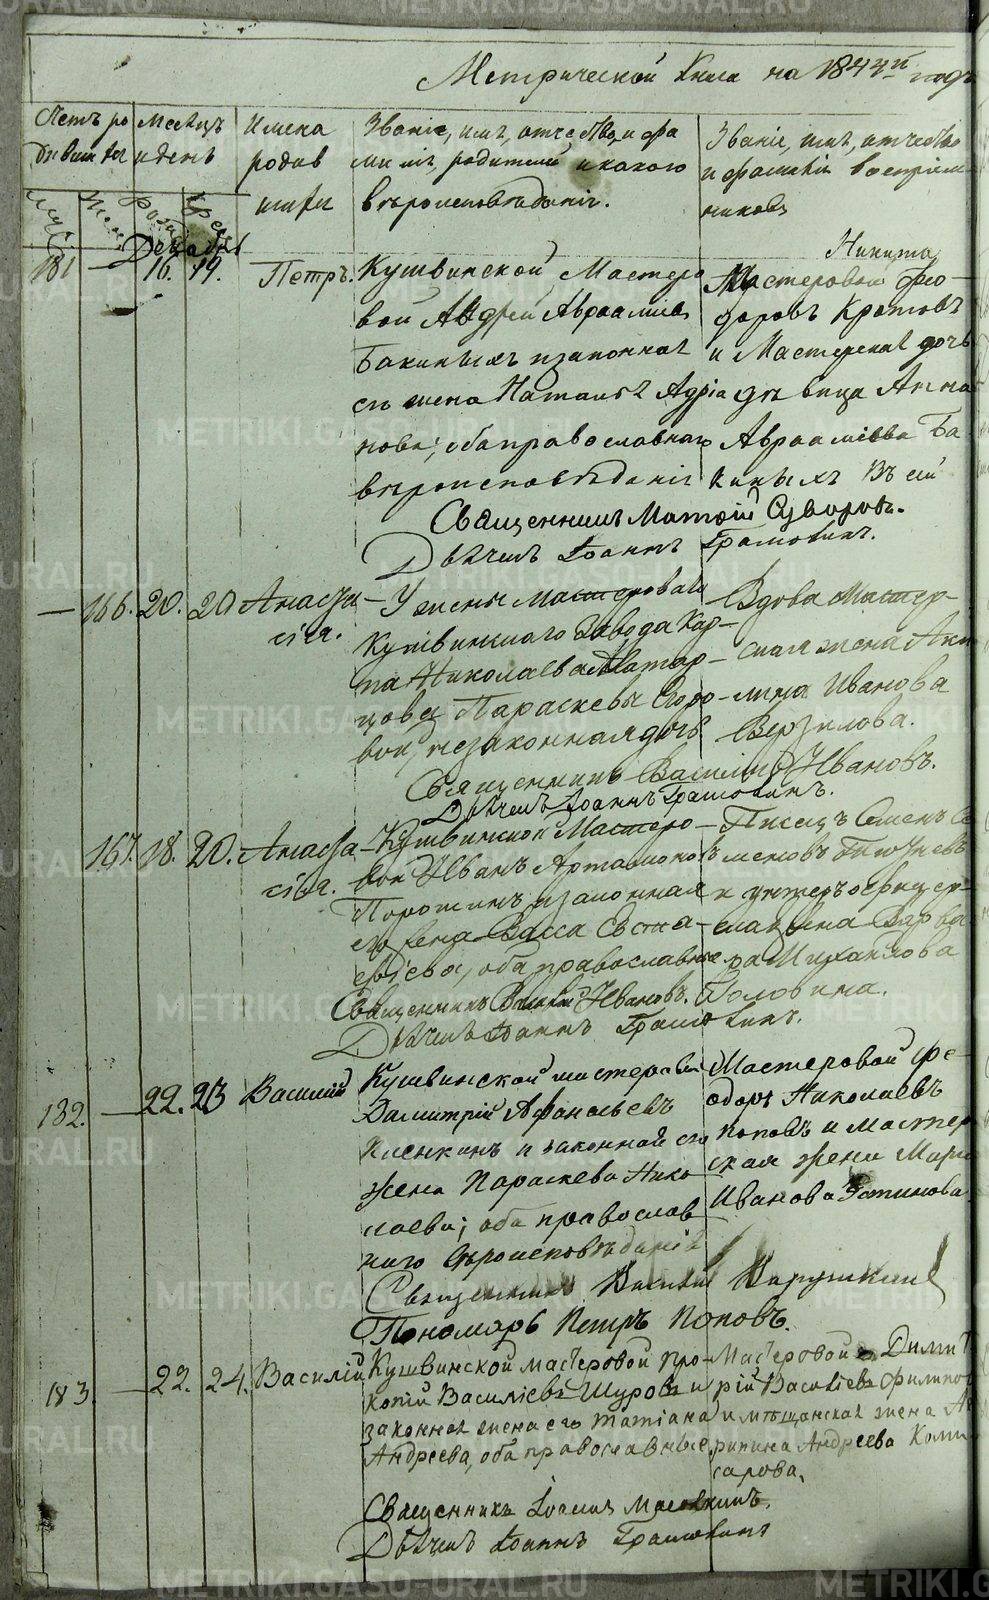 Метрической Книга на 1844й годъ
Счетъ ро
дившихся
Месяцъ
и день
Имена
родив
шихся
Званіе, имя, отчество, и фа
милія, родителей и какого
вѣроисповѣданія.
Званіе, имя, отчество
и фамилія воспріем
никовъ
Декабрь
181 — 16. 19. Петръ.
Кушвинской Мастеро
вой Андрей Авраамiевъ
Бакиныхъ и законная
его жена Наталья Адріа
нова; оба православнаго
вѣроисповѣданія
Никита,
Мастеровой Ѳео
доровъ Кротовъ
и Мастерская дочь
дѣвица Анна
Авраамiева Ба
киныхъ
Священникъ Матѳій Суворовъ.
Дьячекъ Іоаннъ Грамолинъ.
— 166. 20. 20 Анаста
сія.
У жены мастероваго
Кушвинскаго Завода Кар-
па Николаева
Параскевы Егоро-
вой, незаконная дочь
Вдова Мастер-
ская жена Аку
лина Иванова
Верзилова.
Священникъ Василій Ивановъ.
Дьячекъ Іоаннъ Грамолинъ.
167. 18. 20. Анаста
сія.
Кушвинской Мастеро-
вой Иванъ Артамоновъ
Порошинъ и законная
его жена Васса Евста-
фіева, оба православные
Писецъ Семенъ Се
меновъ
и унтеръ офицер-
Варва
ра Михайлова
Головина.
Священникъ Василій Ивановъ.
Дьячекъ Іоаннъ Грамолинъ.
182. — 22. 23 Василій
Кушвинской мастеровой
Дмитрій Афонасьевъ
и законная его
жена Параскева Нико
лаева; оба православ
наго вѣроисповѣданія
Мастеровой Фе
доръ Николаевъ
Поповъ и мастер
ская жена Марья
Иванова Устинова
Священникъ Василій
Пономарь Петръ Поповъ.
183. — 22. 24. Василій
Кушвинской мастеровой Про-
копій Василіевъ Шуровъ и
законная жена его Татіана
Андреева, оба православные
Мастеровой Дими
трій Василіевъ Филипов
и мѣщанская жена Ага
рипина Андреева Коми
сарова,
Священникъ Іоаннъ
Дьячекъ Іоаннъ Грамолинъ
METRIKI.GASO-URAL.RU